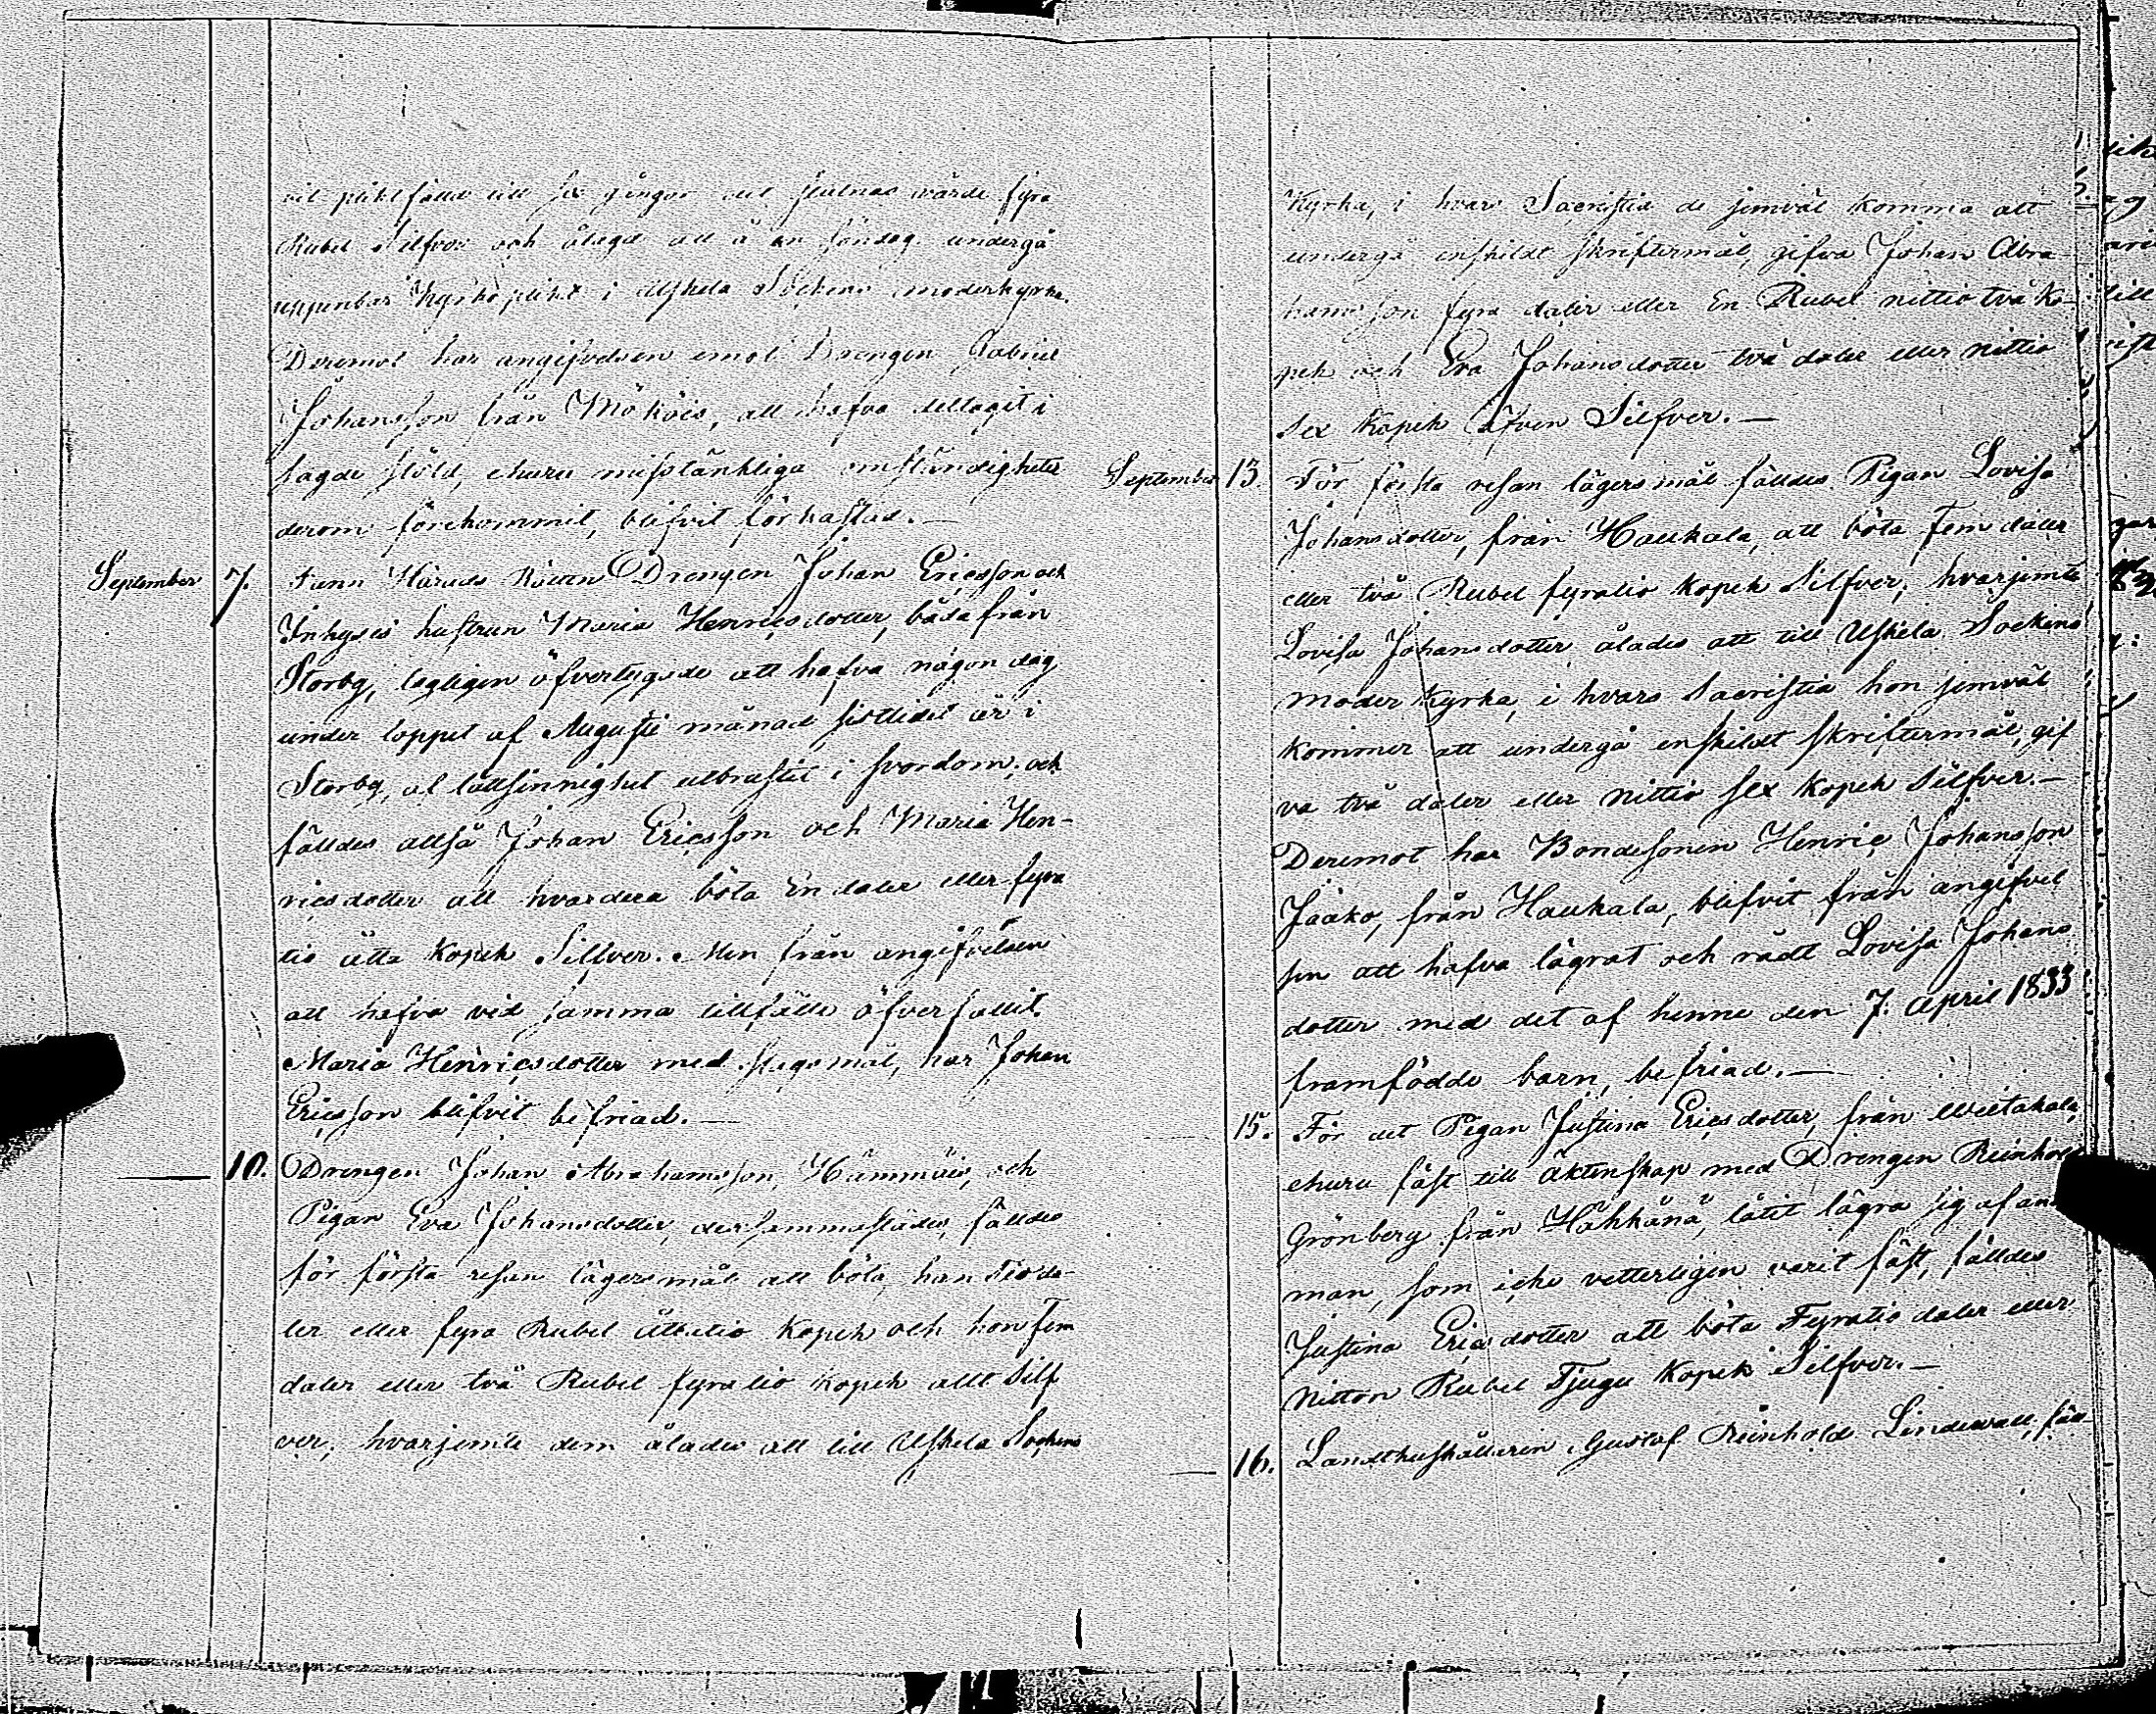 vit pliktfälld till sex gångor det stulnas wärde fyra
Rubel Silfver och ålagd att å en söndag undergå
uppenbar Kyrkoplikt i Uskela Sockens moderkyrka.
Deremot har angifvelsen emot Drengen Gabriel
Johansson från Mököis, att hafva deltagit i
sagde stöld, churu misstänkliga omständigheter
derom förekommit, blifvit förkastad. —
September 7. Fann Härads Rätten Drengen Johan Ericsson och
Inhyses hustrun Maria Henricsdotter, båda från
Storby, lagligen öfvertygade att hafva någon dag
under loppet af Augusti månad sistlidet år i
Storby, af lättsinnighet utbrustit i svordom, och
fälldes alltså Johan Ericsson och Maria Hen-
ricsdotter att hvardera böta En daler eller fyra
tio åtta Kopek Silfver. Men från angifvelsen
att hafva vid samma tillfälle öfverfallit
Maria Henricsdotter med slagsmål, har Johan
Ericsson blifvit befriad. —
— 10. Drengen Johan Abrahamsson, Hämmäis, och
Pigan Eva Johansdotter, dersammastädes, fälldes
för första resan lägersmål att böta, han Tio da-
ler eller fyra Rubel åttatio Kopek och hon fem
daler eller två Rubel fyratio kopek allt Silf
ver, hvarjemte dem ålades att till Uskela Sockens
Kyrka, i hvars Sacristia de jemväl komma att
undergå enskildt skriftermål, gifva Johan Abra-
hamsson fyra daler eller En Rubel nittio två Ko-
pek och Eva Johansdotter två daler eller nittio
sex Kopek äfven Silfver. —
September 13. För första resan lägersmål fälldes Pigan Lovisa
Johansdotter, från Haukala, att böta fem daler
eller två Rubel fyratio Kopek Silfver, hvarjemte
Lovisa Johansdotter ålades att till Uskela Sockens
moder Kyrka, i hvars Sacristia hon jemväl
kommer att undergå enskildt skriftermål, gif
va två daler eller nittio sex Kopek Silfver. —
Deremot har Bondesonen Henric Johansson
Jaako, från Haukala, blifvit från angifvel
sen att hafva lägrat och rådt Lovisa Johans
dotter med det af henne den 7. April 1833
framfödde barn, befriad. —
15. För det Pigan Justina Ericsdotter, från
ehuru fäst till äktenskap med Drengen Reinhold
Grönberg från Hähkänä, låtit lägra sig af
man, som icke vetterligen varit fäst, fälldes
Justina Ericsdotter att böta Fyratio daler eller
Nitton Rubel Tjugu Kopek Silfver. —
— 16. Landthushållaren Gustaf Reinhold Lindewall, fäll-